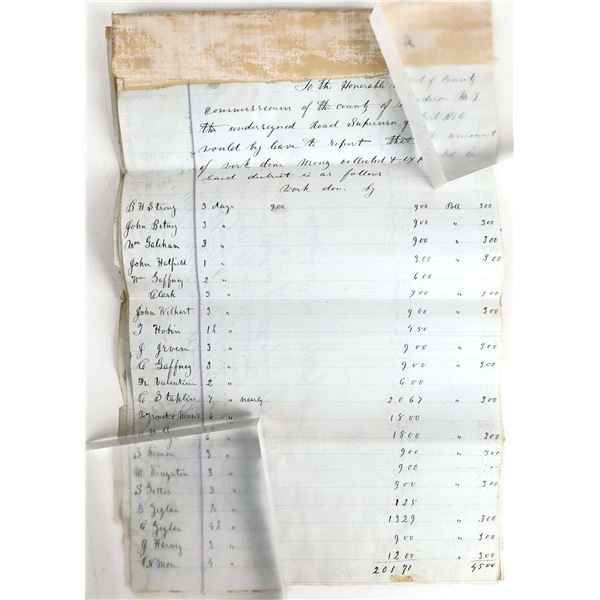 To the Honerable of County
Commissioners of the county of
the undersigned Road Supervisor
would by leave to report that amount
of work don Mony collected & ex
said district is as follows
Work don by
B H Strong 3 days 9.00 9 00 Poll 3 00
John Betny 3 " 9 00 " 3 00
Wm Galihan 3 " 9 00 " 3 00
John Hatfield 1 " 3 00 " 3 00
Wm Gaffney 2 " 6 00
Clark 3 " 9 00 " 3 00
John Wilhert 3 " 9 00 " 3 00
T Hobin 1½ " 4 50
J Irven 3 " 9 00 " 3 00
C Gaffney 3 " 9 00 " 3 00
Dr Valentine 2 " 6 00
C Staplin 7 " nearly 20 67 " 3 00
6 " 18 00
6 " 18 00 " 3 00
S Simon 3 " 9 00 " 3 00
M Kingston 3 " 9 00
S Gettis 3 " 9 00 " 3 00
B Ziglar ½ " 1 25
C Ziglar 4½ " 13 29 " 3 00
J Harvey 3 " 9 00 " 3 00
4 " 12 00 " 3 00
201 71 45 00